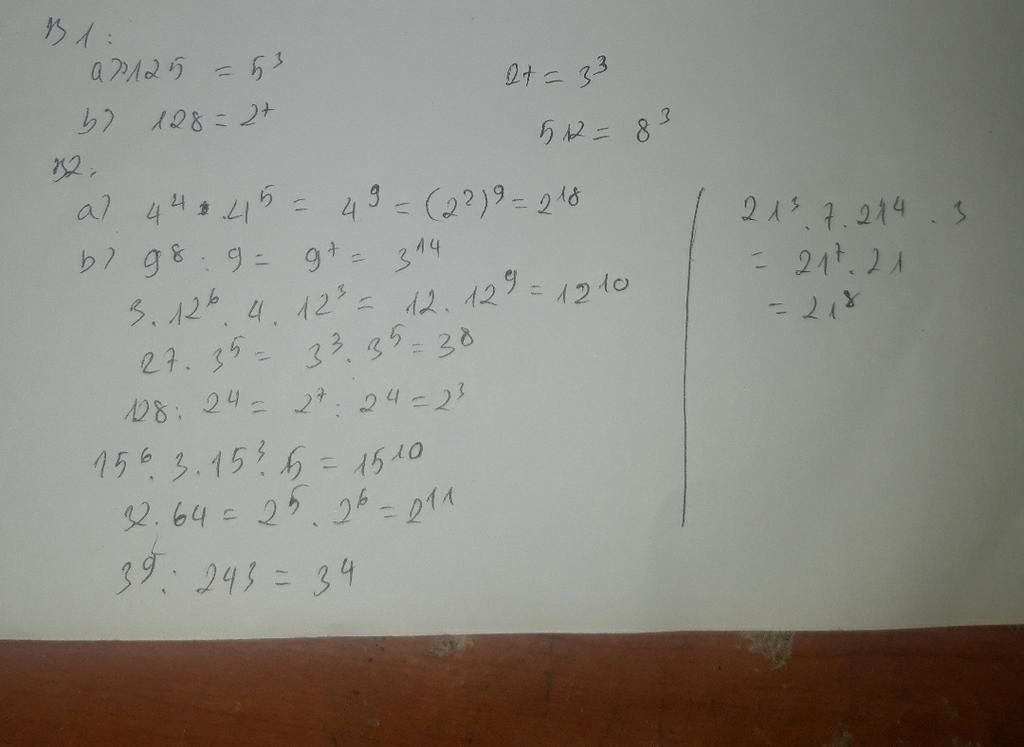 B1:
a) 125 = 5³
27 = 3³
b) 128 = 2⁷
512 = 8³
B2:
a) 4⁴ . 4⁵ = 4⁹ = (2²)⁹ = 2¹⁸
b) 9⁸ : 9 = 9⁷ = 3¹⁴
3 . 12⁶ . 4 . 12³ = 12 . 12⁹ = 12¹⁰
27 . 3⁵ = 3³ . 3⁵ = 3⁸
128 : 2⁴ = 2⁷ : 2⁴ = 2³
15⁶ . 3 . 15³ . 5 = 15¹⁰
32 . 64 = 2⁵ . 2⁶ = 2¹¹
3⁹ : 243 = 3⁴
21³ . 7 . 21⁴ . 3
= 21⁷ . 21
= 21⁸